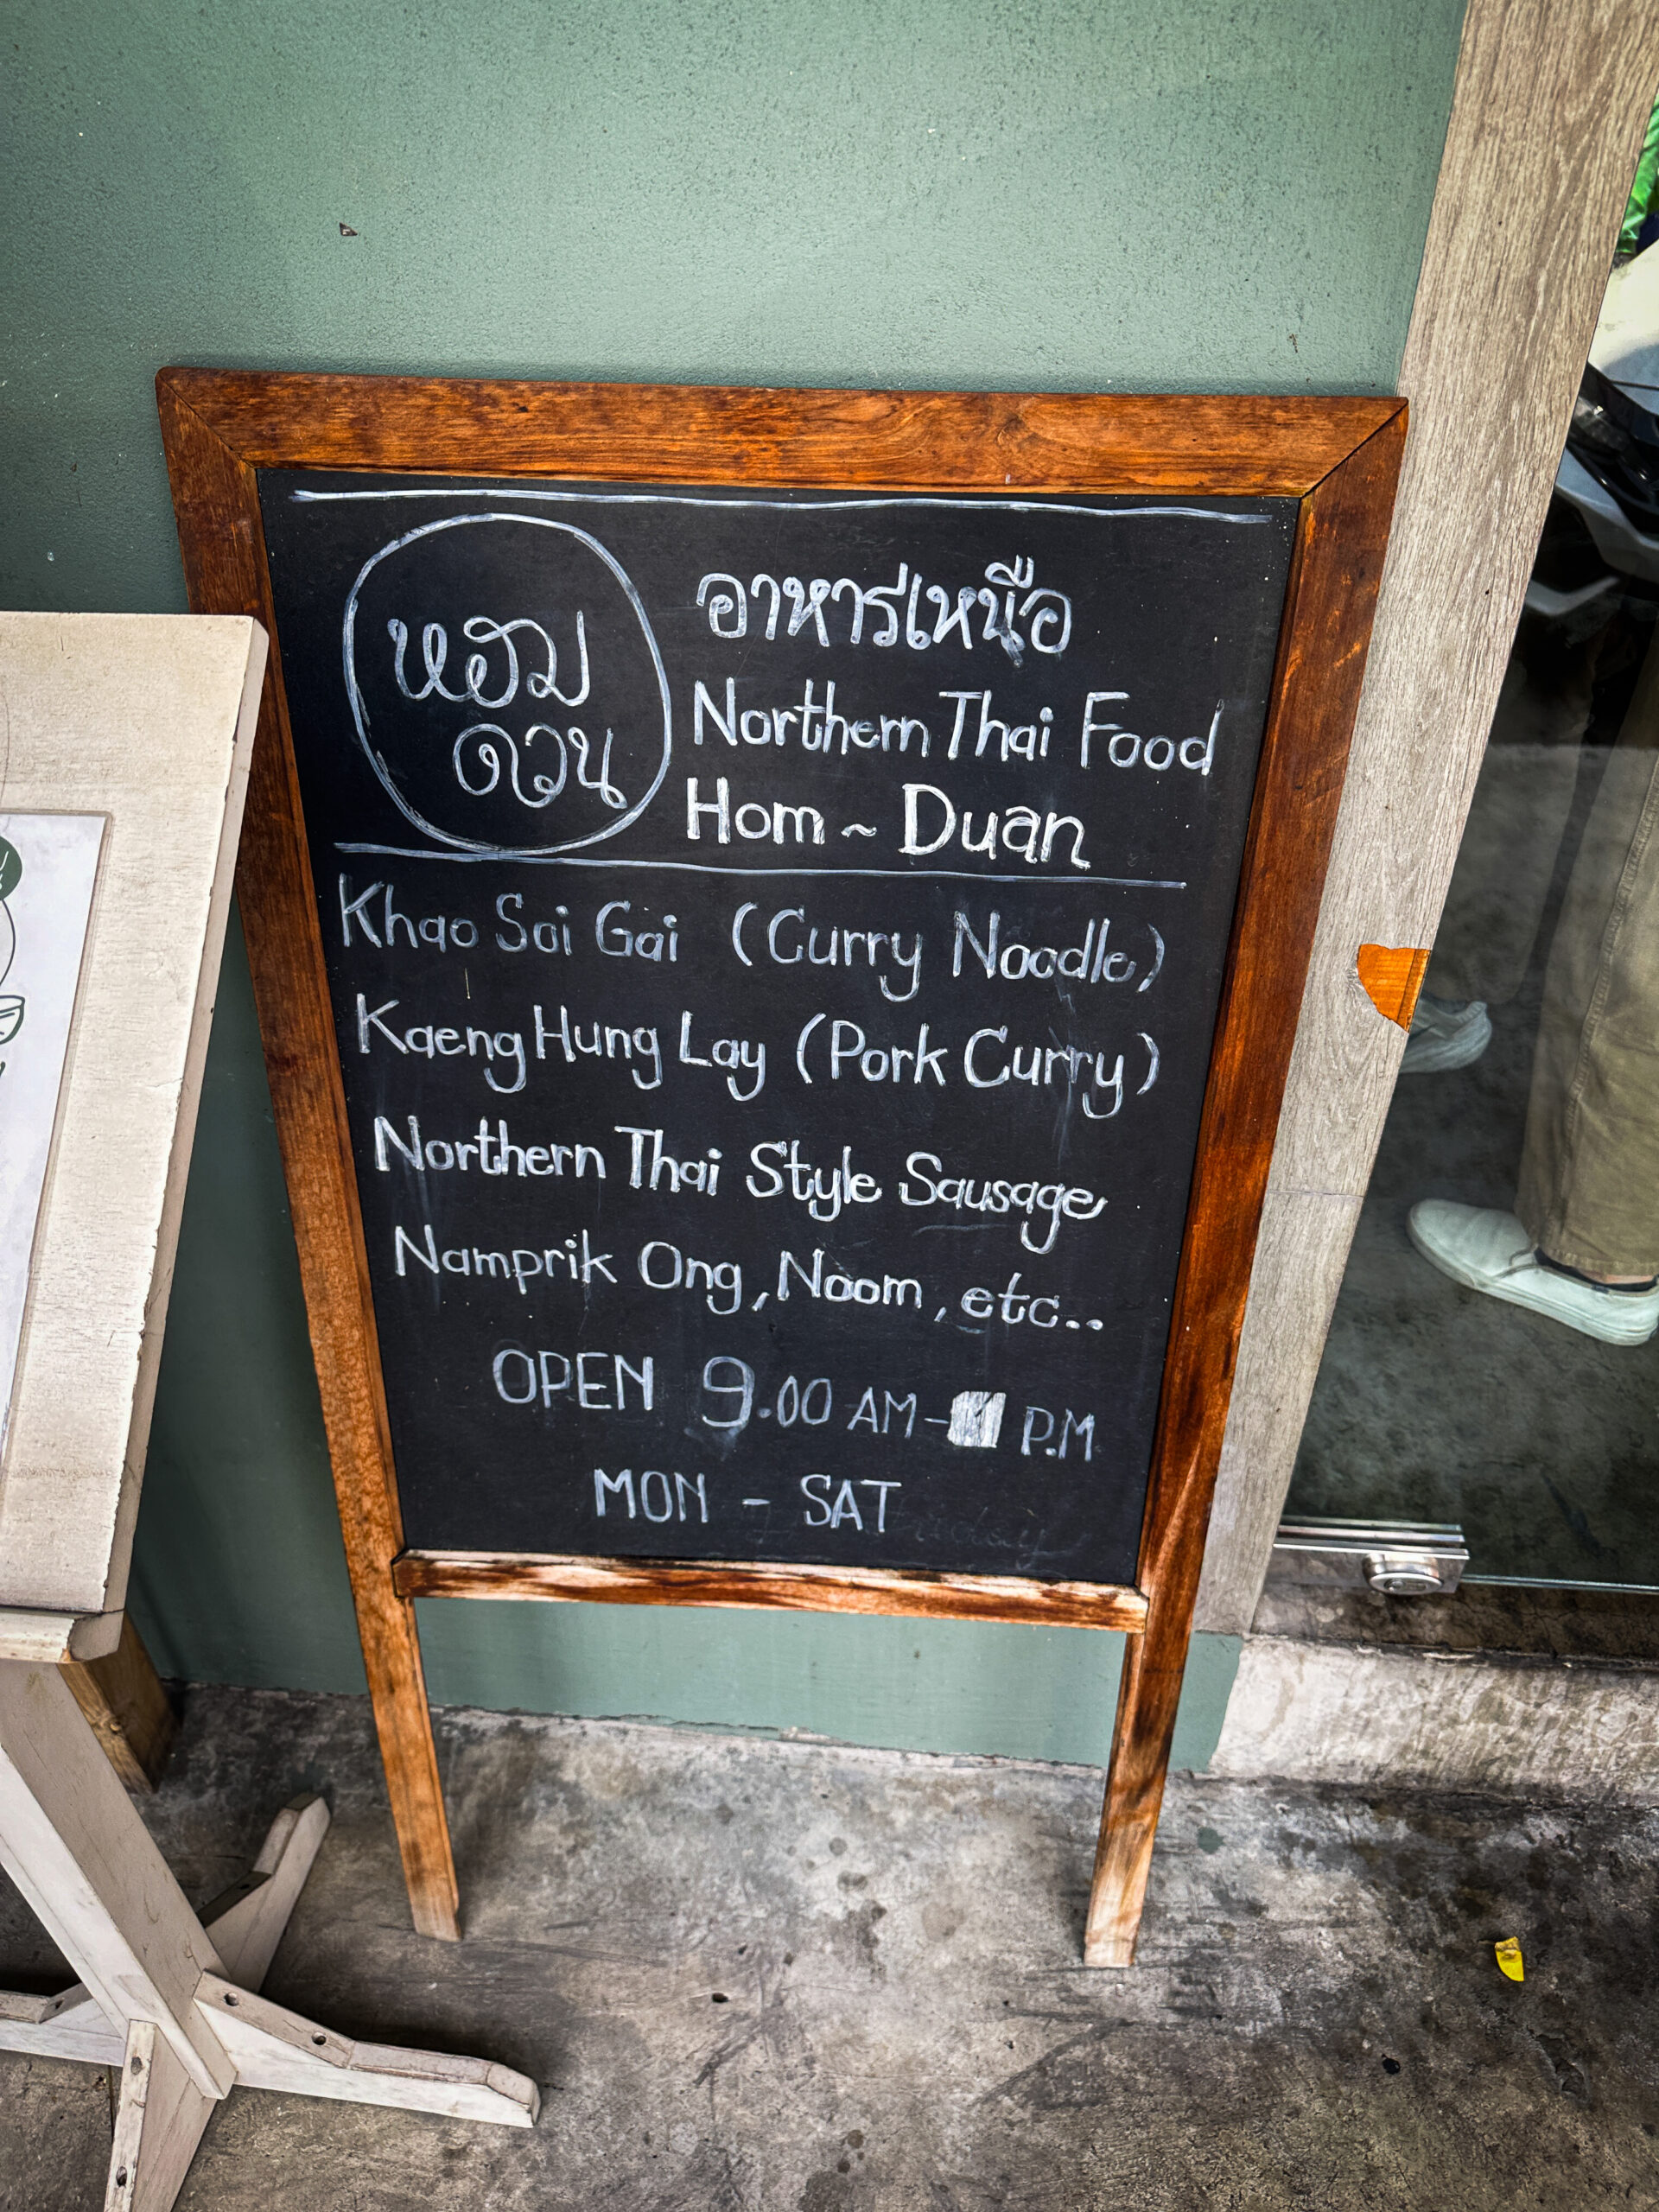 หอม
ดวน
อาหารเหนือ
Northern Thai Food
Hom ~ Duan
Khao Soi Gai (Curry Noodle)
Kaeng Hung Lay (Pork Curry)
Northern Thai Style Sausage
Namprik Ong, Noom, etc..
OPEN 9.00 AM - P.M
MON - SAT